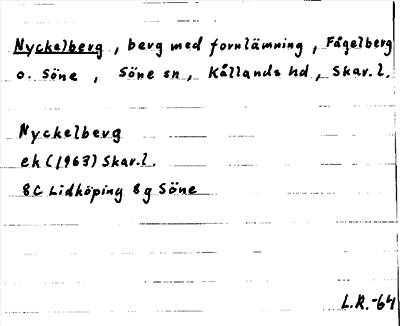 Nyckelberg, berg med fornlämning, Fågelberg
o. Söne, Söne sn, Kållands hd, Skar.l.
Nyckelberg
ek (1963) Skar.l.
8C Lidköping 8g Söne
L.R.-64